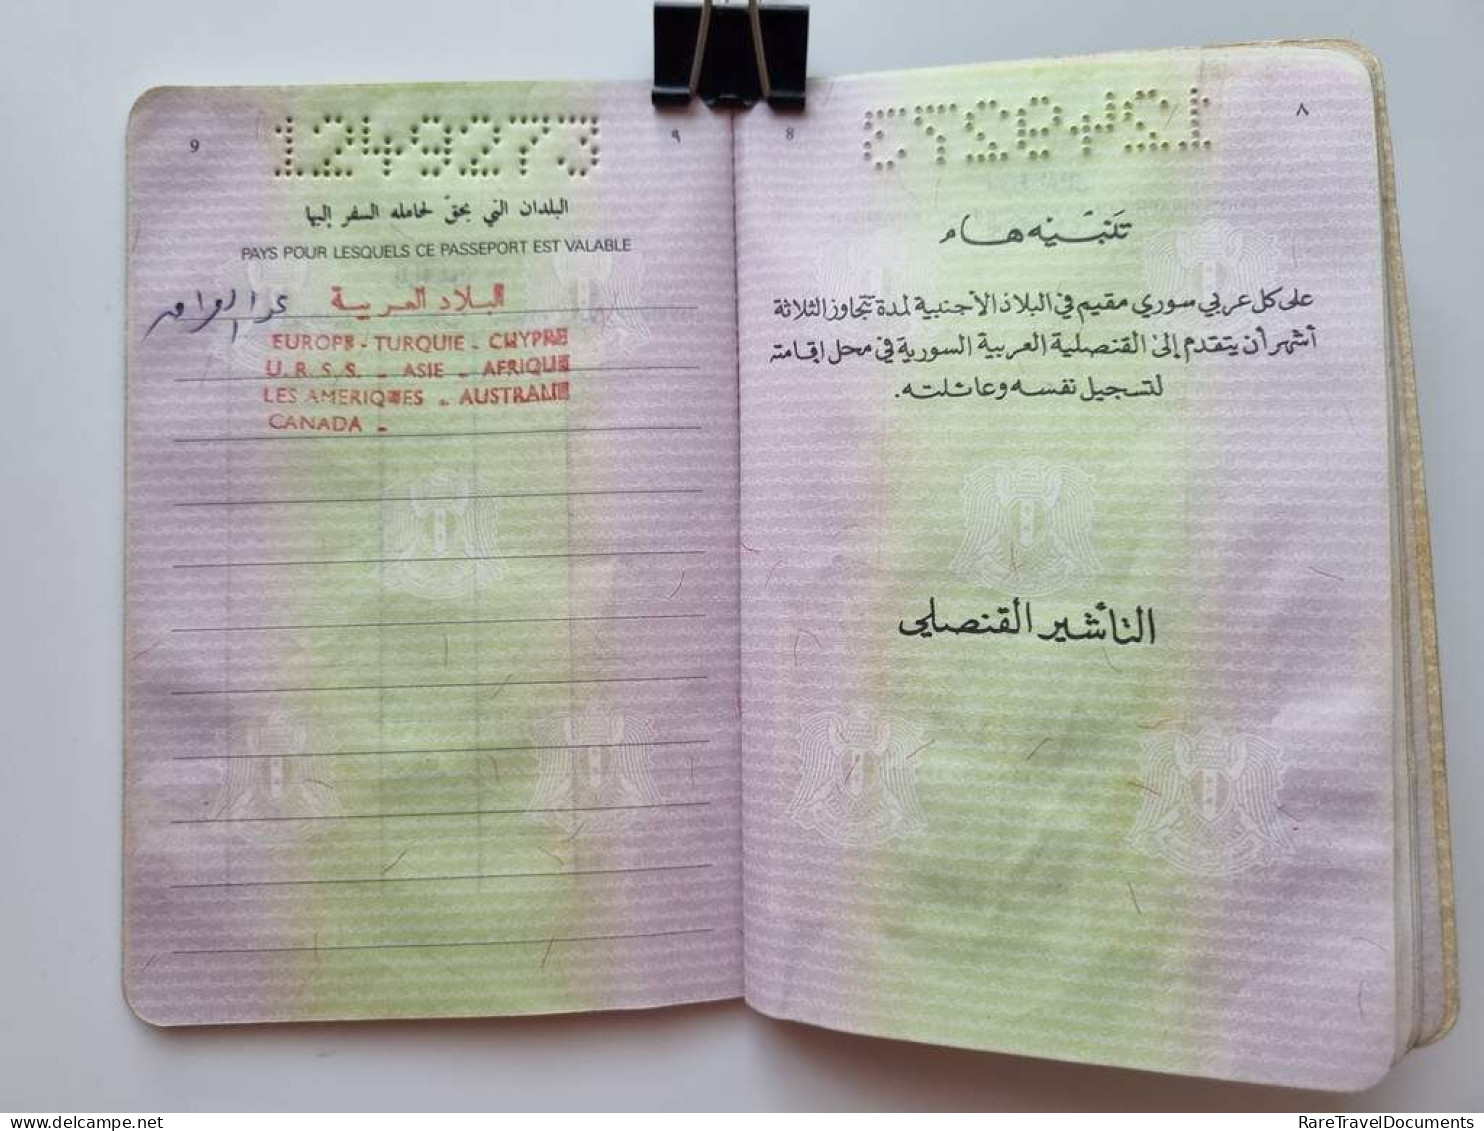 9
1249273
٩
البلدان التي يحق لحامله السفر إليها
PAYS POUR LESQUELS CE PASSEPORT EST VALABLE
البلاد العربية عدا العراق
EUROPE - TURQUIE - CHYPRE
U.R.S.S. - ASIE - AFRIQUE
LES AMERIQUES - AUSTRALIE
CANADA -
8
٨
تنبيه هام
على كل عربي سوري مقيم في البلاد الأجنبية لمدة تتجاوز الثلاثة
أشهر أن يتقدم إلى القنصلية العربية السورية في محل إقامته
لتسجيل نفسه وعائلته.
التأشير القنصلي
RareTravelDocuments